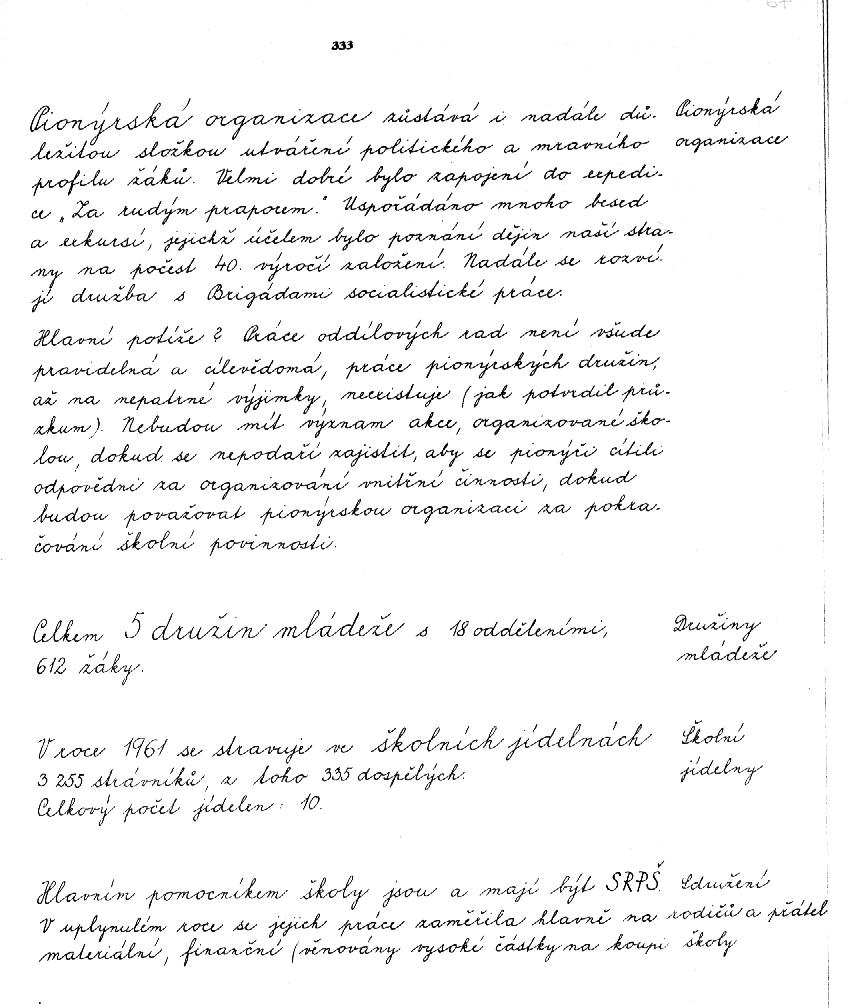 333
Pionýrská organizace zůstává i nadále dů- Pionýrská
ležitou složkou utváření politického a mravního organizace
profilu žáků. Velmi dobré bylo zapojení do expedi-
ce „Za rudým praporem." Uspořádáno mnoho besed
a exkursí, jejichž účelem bylo poznání dějin naší stra-
ny na počest 40. výročí založení. Nadále se rozví-
jí družba s Brigádami socialistické práce.
Hlavní potíže? Práce oddílových rad není všude
pravidelná a cílevědomá, práce pionýrských družin,
až na nepatrné výjimky, neexistuje (jak potvrdil prů-
zkum). Nebudou mít význam akce, organizované ško-
lou, dokud se nepodaří zajistit, aby se pionýři cítili
odpovědni za organizování vnitřní činnosti, dokud
budou považovat pionýrskou organizaci za pokra-
čování školní povinnosti.
Celkem 5 družin mládeže s 18 odděleními, Družiny
612 žáky. mládeže
V roce 1961 se stravuje ve školních jídelnách Školní
3 255 strávníků, z toho 335 dospělých. jídelny
Celkový počet jídelen: 10.
Hlavním pomocníkem školy jsou a mají být SRPŠ. Sdružení
V uplynulém roce se jejich práce zaměřila hlavně na rodičů a přátel
materiální, finanční (věnovány vysoké částky na koupi školy